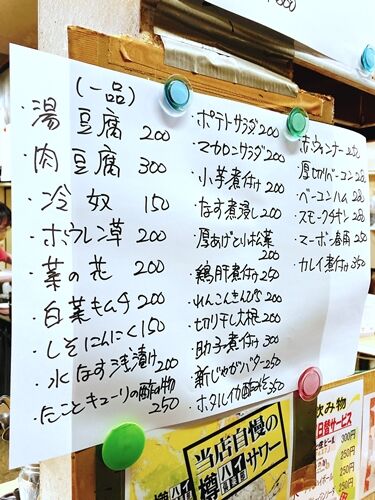 (一品)
・湯豆腐 200
・肉豆腐 300
・冷奴 150
・ホウレン草 200
・菜の花 200
・白菜キムチ 200
・しそにんにく 150
・水なす浅漬け 200
・たことキューリの酢の物 250
・ポテトサラダ 200
・マカロニサラダ 200
・小芋煮付け 200
・なす煮浸し 200
・厚あげと小松菜 200
・鶏肝煮付 250
・れんこんきんぴら 200
・切り干し大根 200
・助子煮付 300
・新じゃがバター 250
・ホタルイカ酢みそ 350
・赤ウィンナー
・厚切りベーコン
・ベーコンハム
・スモークタン
・マーボー春雨 250
・カレイ煮付け 350
当店自慢の
樽ハイ
サワー
飲み物
日替サービス
300円
250円
250円
250円